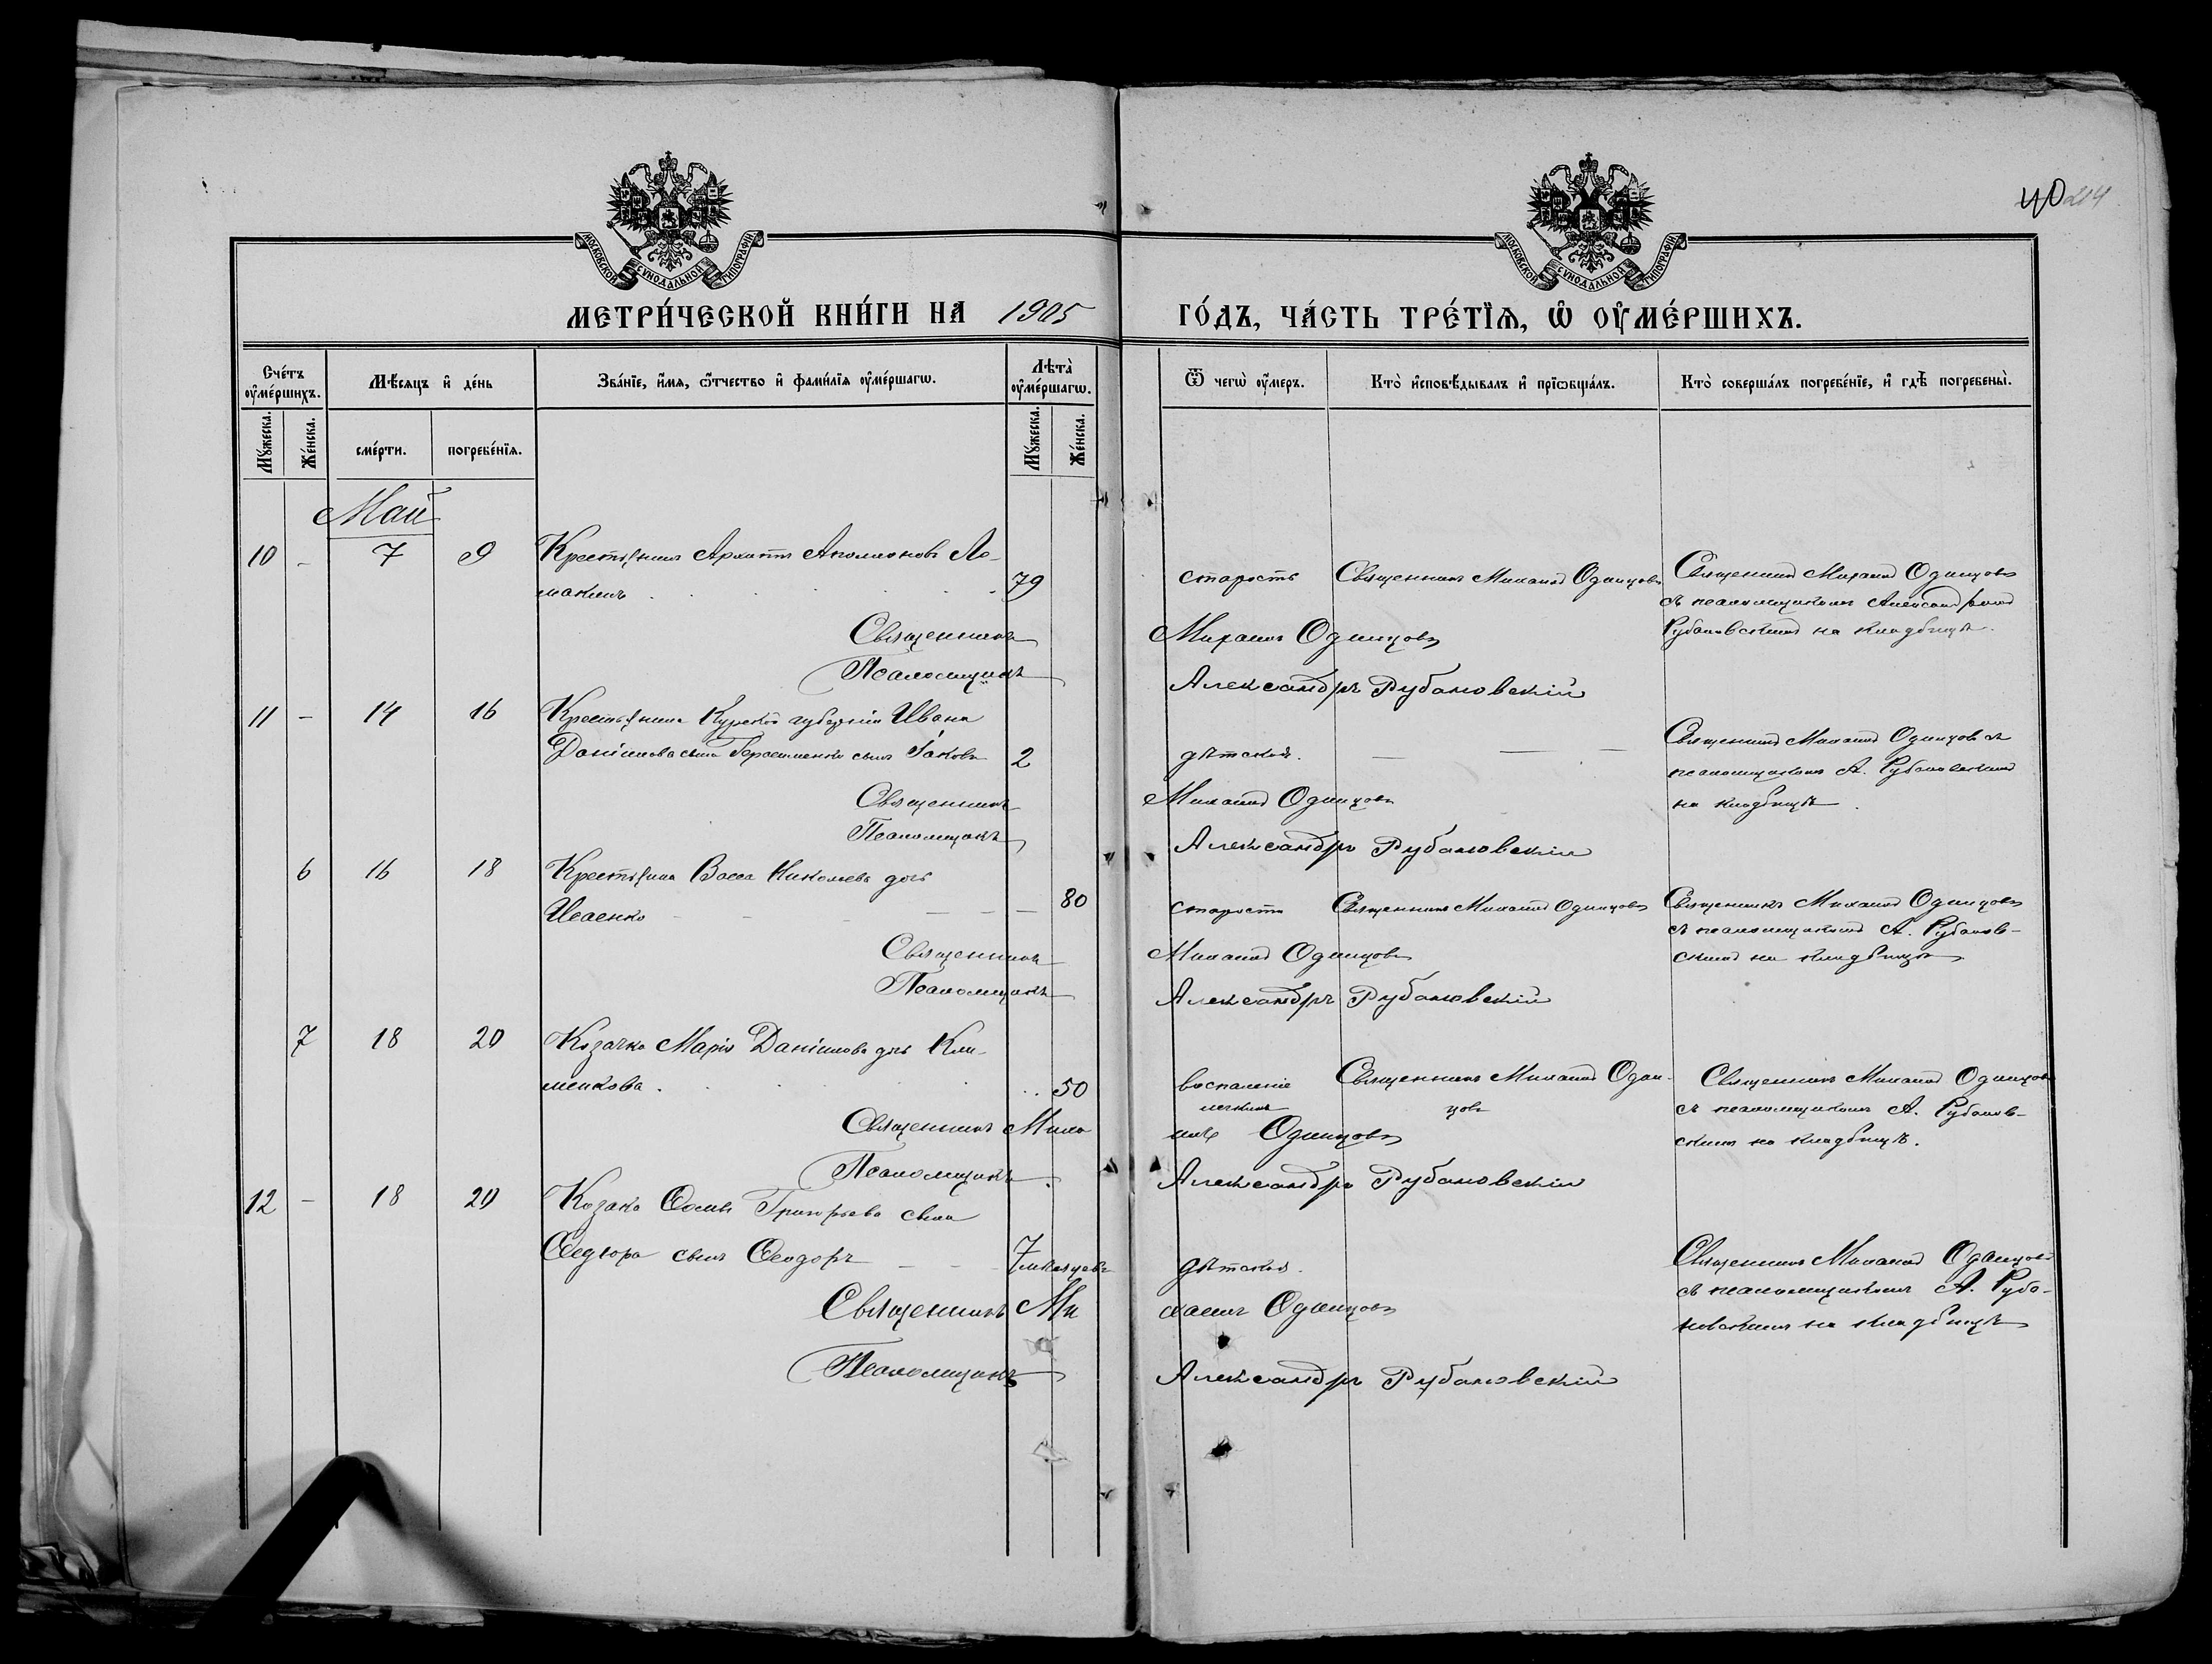 40 214
МОСКОВСКОЙ СѴНОДАЛЬНОЙ ТИПОГРАФІИ
МОСКОВСКОЙ СѴНОДАЛЬНОЙ ТИПОГРАФІИ
МЕТРИ́ЧЕСКОЙ КНИ́ГИ НА 1905 ГО́ДЪ, ЧА́СТЬ ТРЕ́ТЇѦ, Ѡ ОУ҆МЕ́РШИХЪ.
Сче́тъ оу҆ме́ршихъ.
Мѣ́сяцъ и҆ де́нь
Зва́нїе, и҆́мя, ѻ҆́тчество и҆ фами́лїя оу҆ме́ршагѡ.
Лѣта̀ оу҆ме́ршагѡ.
Ѿ чегѡ̀ оу҆́меръ.
Кто̀ и҆сповѣ́дывалъ и҆ прїѡбща́лъ.
Кто̀ соверша́лъ погребе́нїе, и҆ гдѣ̀ погребены̀.
Мꙋ́жеска. Же́нска. сме́рти. погребе́нїя. Мꙋ́жеска. Же́нска.
Май
10 - 7 9 Крестьянинъ Архиппъ Аполлоновъ Ло-
макинъ 79 старость Священникъ Михаилъ Одинцовъ Священникъ Михаилъ Одинцовъ
съ псаломщикомъ Александромъ
Рубановскимъ на кладбищѣ.
Священникъ Михаилъ Одинцовъ
Псаломщикъ Александръ Рубановскій
11 - 14 16 Крестьянина Курской губерніи Ивана
Даніилова сына Герасименко сынъ Іаковъ 2 дѣтской. Священникъ Михаилъ Одинцовъ съ
псаломщикомъ А. Рубановскимъ
на кладбищѣ.
Священникъ Михаилъ Одинцовъ
Псаломщикъ Александръ Рубановскій
6 16 18 Крестьянка Васса Николаева дочь
Исаенко 80 старости Священникъ Михаилъ Одинцовъ Священникъ Михаилъ Одинцовъ
съ псаломщикомъ А. Рубанов-
скимъ на кладбищѣ
Священникъ Михаилъ Одинцовъ
Псаломщикъ Александръ Рубановскій
7 18 20 Козачка Марія Даніилова дочь Кли-
менкова. 50 воспаленіе легкихъ Священникъ Михаилъ Один-
цовъ
Священникъ Михаилъ Одинцовъ
съ псаломщикомъ А. Рубанов-
скимъ на кладбищѣ.
Священникъ Михаилъ Одинцовъ
Псаломщикъ Александръ Рубановскій
12 - 18 20 Козака Григорьева сына
сынъ Ѳеодоръ 7 мѣсяцевъ дѣтской. Священникъ Михаилъ Одинцовъ
съ псаломщикомъ А. Руба-
новскимъ на кладбищѣ
Священникъ Михаилъ Одинцовъ
Псаломщикъ Александръ Рубановскій